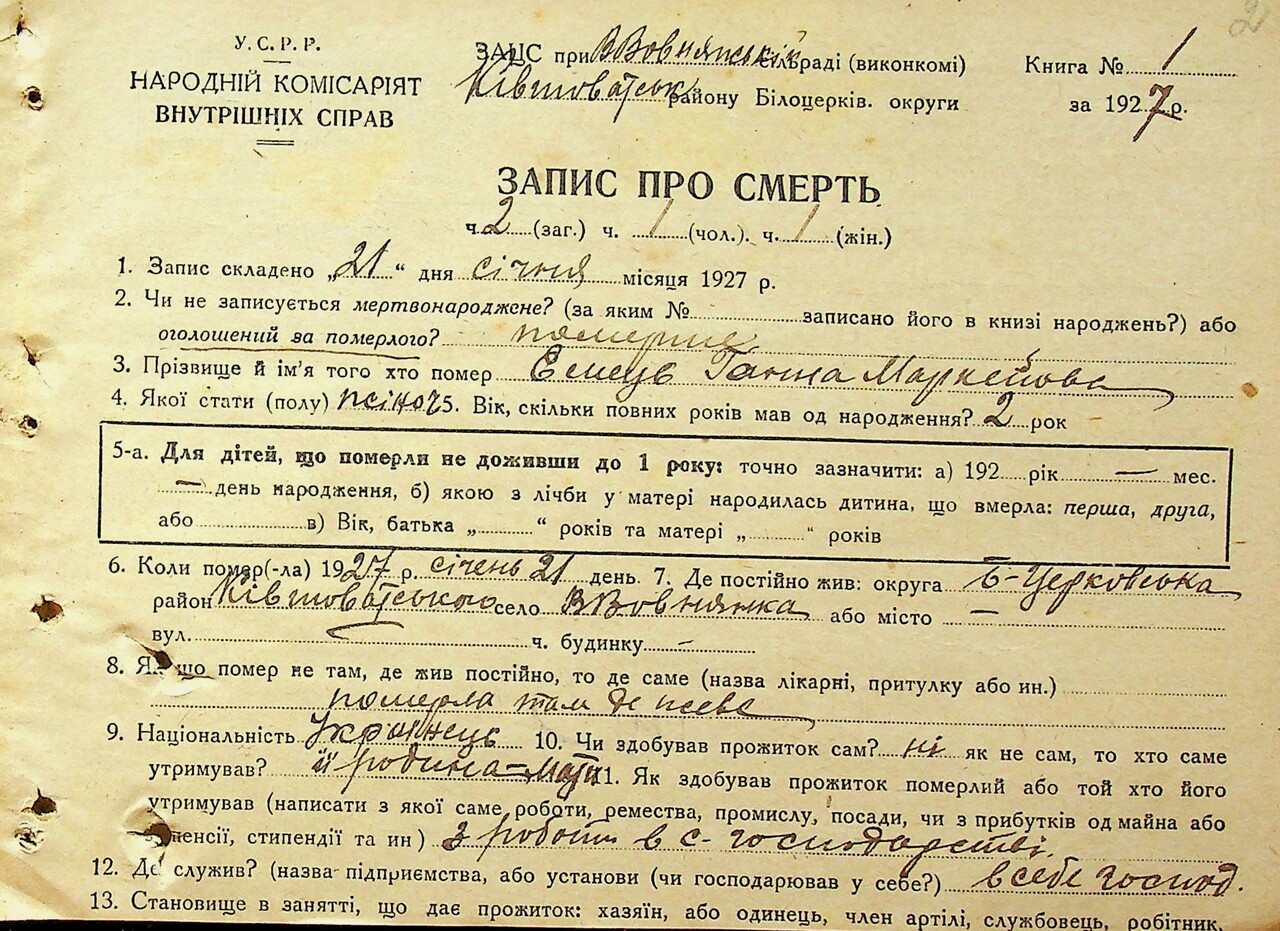 У. С. Р. Р.
НАРОДНІЙ КОМІСАРІЯТ
ВНУТРІШНІХ СПРАВ
ЗАЦС при ВВовнянській сільраді (виконкомі)
Ківшоватськ району Білоцерків. округи
Книга № 1
за 1927 р.
2
ЗАПИС ПРО СМЕРТЬ
ч. 2 (заг.) ч. 1 (чол.). ч. 1 (жін.)
1. Запис складено „21“ дня січня місяця 1927 р.
2. Чи не записується мертвонароджене? (за яким № записано його в книзі народжень?) або
оголошений за померлого? померше
3. Прізвище й ім'я того хто помер Емець Ганна Маркейова
4. Якої стати (полу) жіноч 5. Вік, скільки повних років мав од народження? 2 рок
5-а. Для дітей, що померли не доживши до 1 року: точно зазначити: а) 192 рік — мес.
— день народження, б) якою з лічби у матері народилась дитина, що вмерла: перша, друга,
або в) Вік, батька „ “ років та матері „ “ років
6. Коли помер(-ла) 1927 р. січень 21 день. 7. Де постійно жив: округа Б-Церковська
район Ківшоватського село ВВовнянка або місто —
вул. — ч. будинку —
8. Як що помер не там, де жив постійно, то де саме (назва лікарні, притулку або ин.)
померла там де жеве
9. Національність Українець 10. Чи здобував прожиток сам? ні як не сам, то хто саме
утримував? її родина — мати 11. Як здобував прожиток померлий або той хто його
утримував (написати з якої саме роботи, ремества, промислу, посади, чи з прибутків од майна або
з пенсії, стипендії та ин) З роботи в с-господарстві
12. Де служив? (назва підприємства, або установи (чи господарював у себе?) в себе господ.
13. Становище в занятті, що дає прожиток: хазяїн, або одинець, член артілі, службовець, робітник,